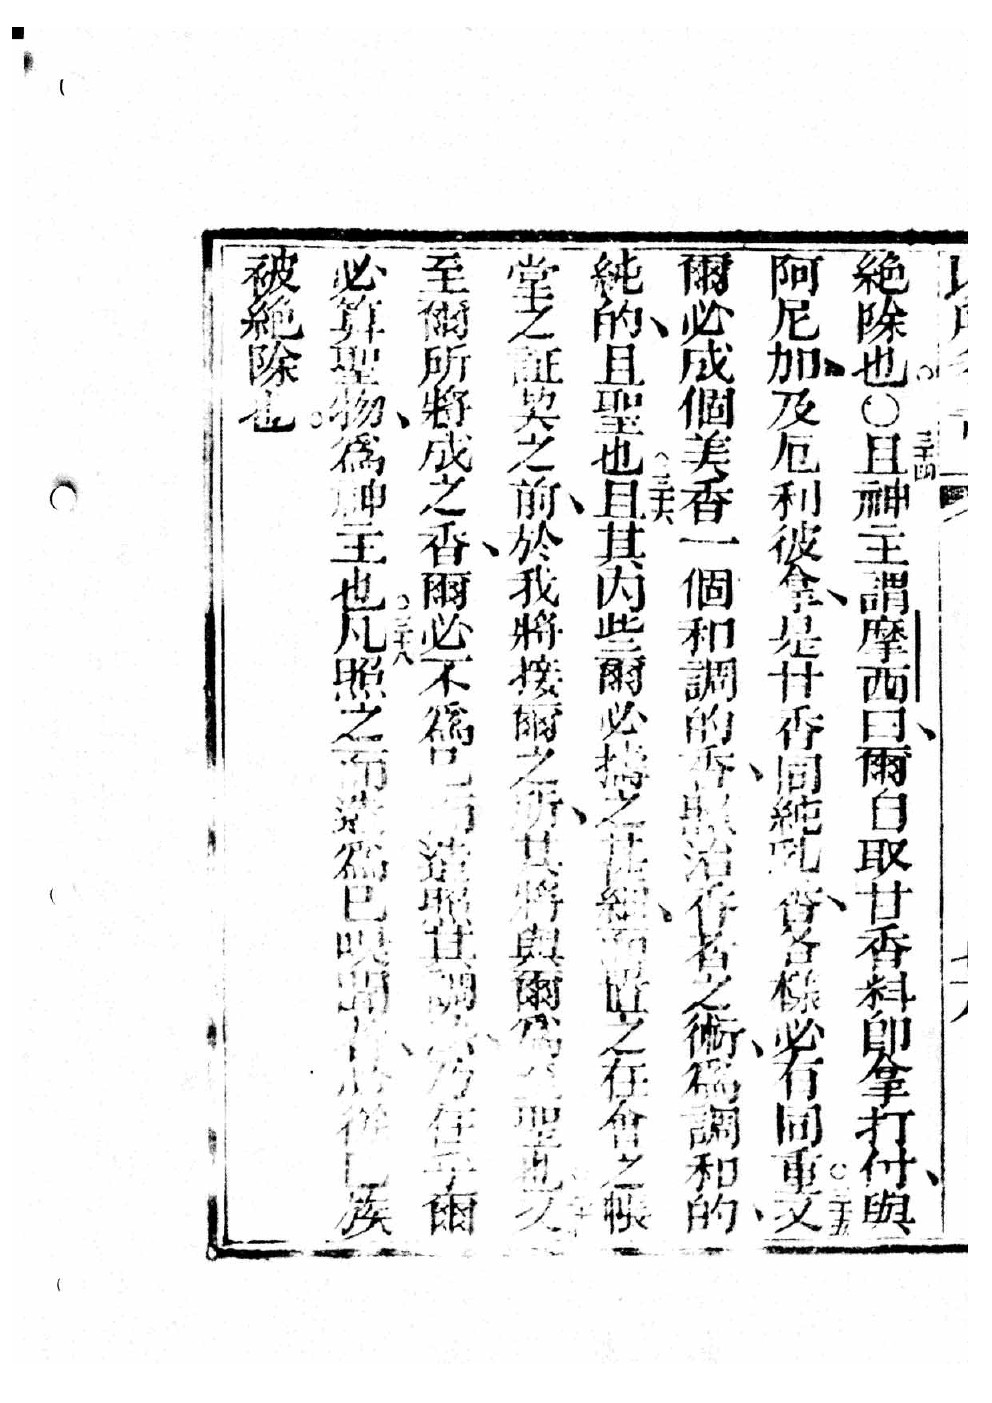 絶除也。〇三十四且神主謂摩西曰、爾自取甘香料、卽拿打付與
阿尼加、及厄利彼拿、是廿香同純乳香、各樣必有同重。三十五又
爾必成個美香、一個和調的香、照治香者之術、爲調和的、
純的、且聖也。三十六且其內些爾必擣之甚細、而置之在會之帳
堂之証㒲之前、於我將接爾之所、其將與爾爲至聖也。又
至爾所將成之香、爾必不爲己而造照其調 爾
必算聖物、爲神主也。三十八凡照之而造爲己嗅聞 族
被絶除也。